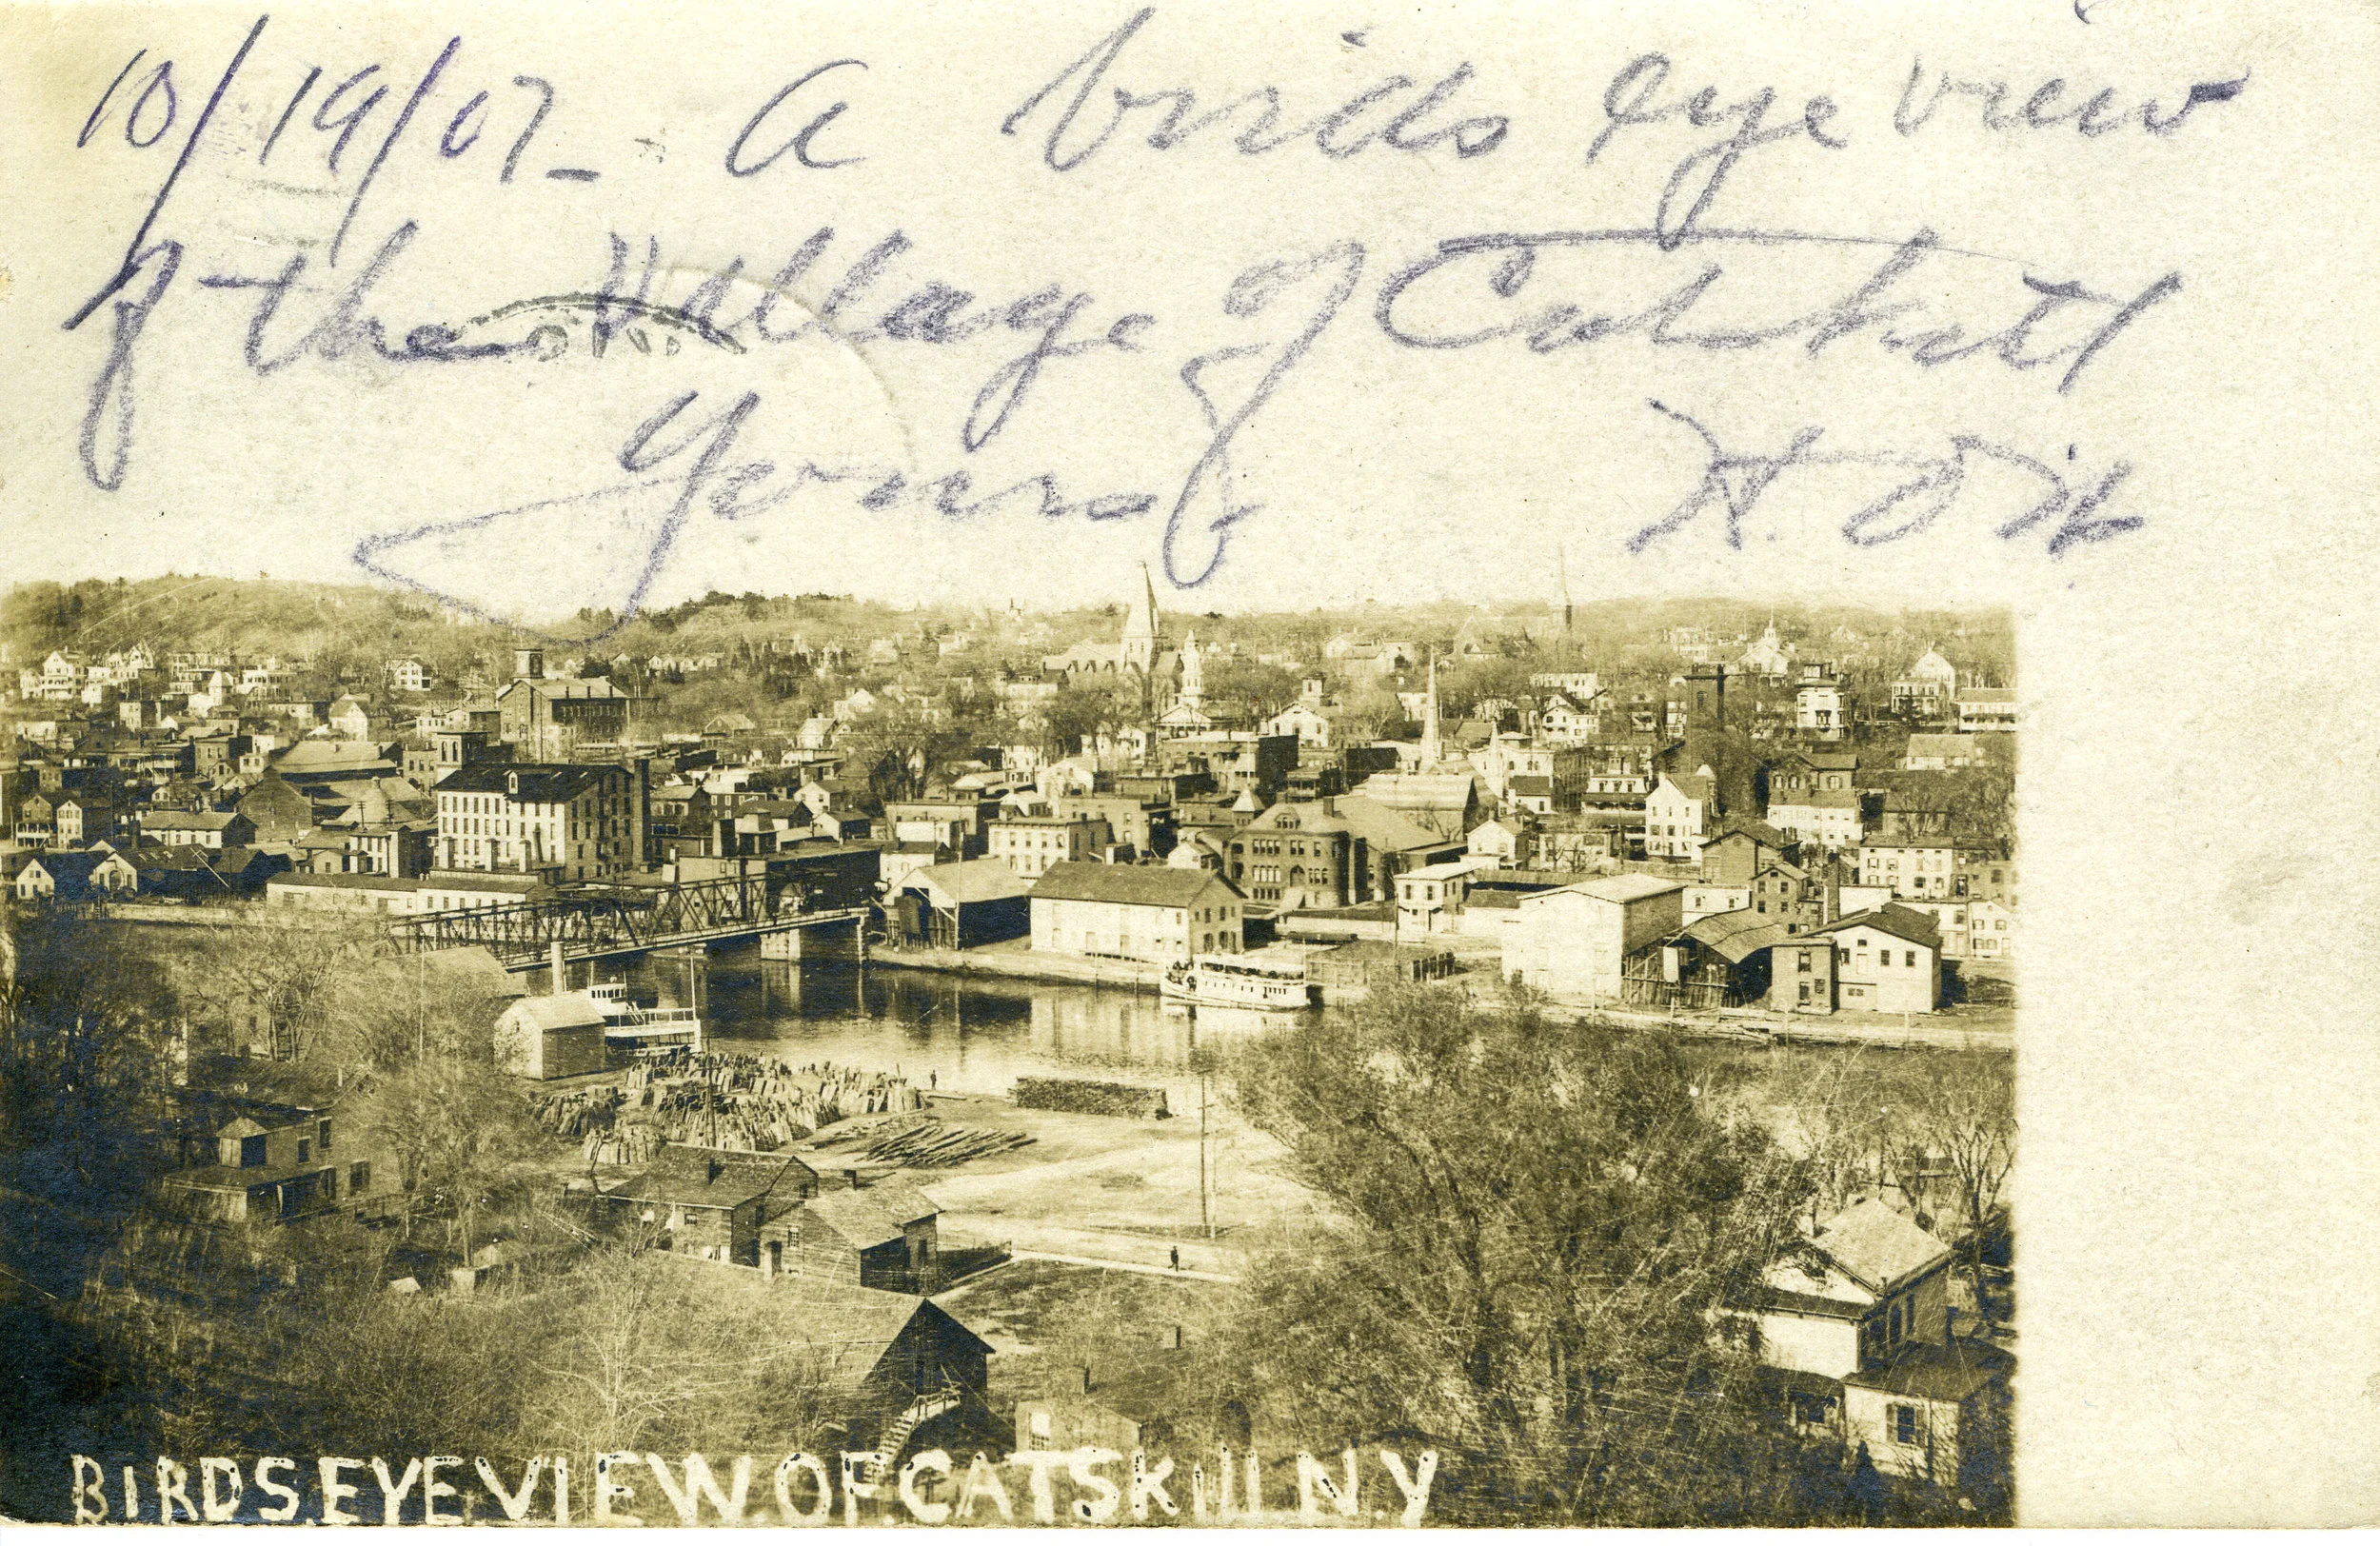 10/19/07 - A birds eye view
of the Village of Catskill
Yours
BIRDS.EYE.VIEW.OF.CATSKILL N.Y